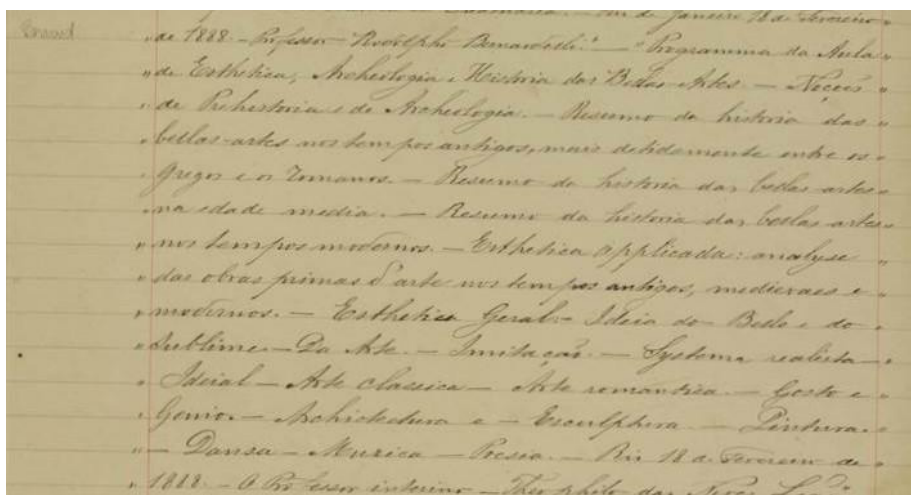 Rio de Janeiro 18 de Fevereiro
" de 1888. – Professor Rodolpho Bernardelli." – "Programma da Aula "
" de Esthetica, Archeologia e Historia das Bellas Artes. – Noções "
" de Prehistoria e de Archeologia. – Resumo da historia das "
" bellas-artes nos tempos antigos, mais detidamente entre os "
" Gregos e os Romanos. – Resumo da historia das bellas artes "
" na edade media. – Resumo da historia das bellas artes "
" nos tempos modernos. – Esthetica applicada: analyse "
" das obras primas d'arte nos tempos antigos, medievaes e "
" modernos. – Esthetica Geral – Ideia do Bello e do "
" Sublime – Da Arte. – Imitação. – Systema realista – "
" Ideial – Arte classica – Arte romantica. – Gosto e "
" Genio. – Archictectura e – Esculptura. – Pintura. "
" – Dansa – Muzica – Poesia. – Rio 18 de Fevereiro de "
" 1888. – O Professor interino – Theophilo das Neves Leão